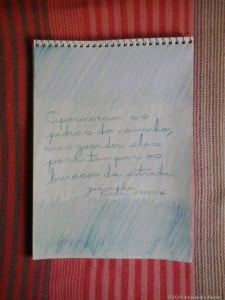 Apareceram as
pedras do caminho,
mas guardei elas
para tampar os
buracos da estrada